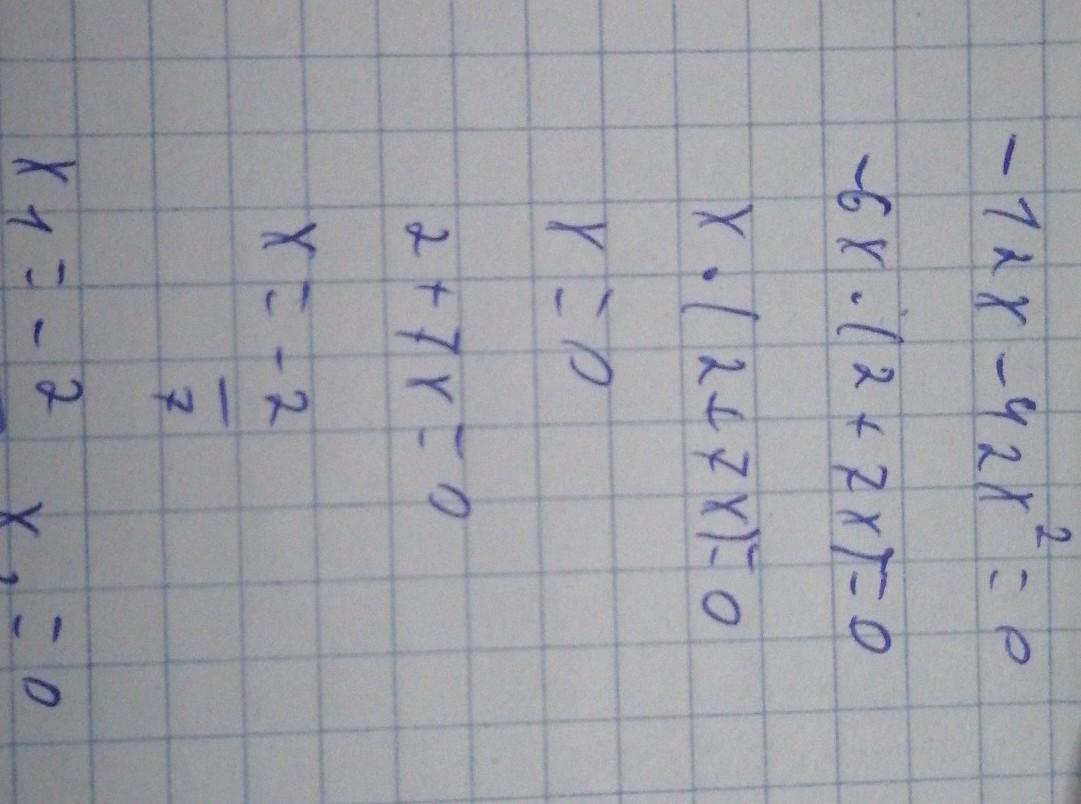 -12x-42x²=0
-6x·(2+7x)=0
x·(2+7x)=0
x=0
2+7x=0
x=-2
7
x1=-2 x2=0